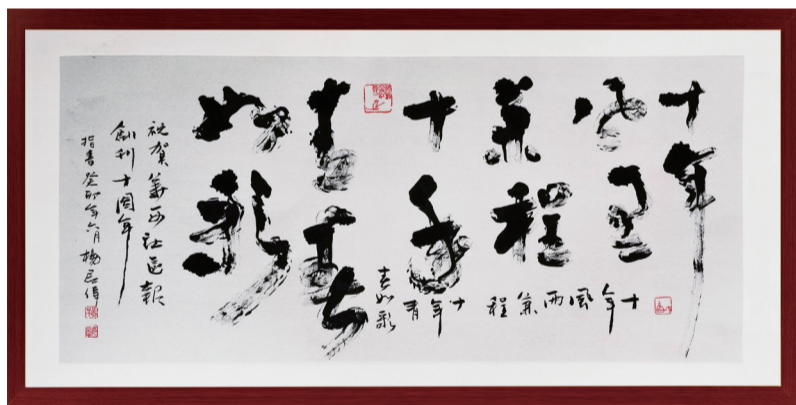 十年
风雨
兼程
十年
青春
如歌
十年風雨兼程
十年青
春如歌
祝賀華西社區報
創刊十周年
指書癸卯年六月楊